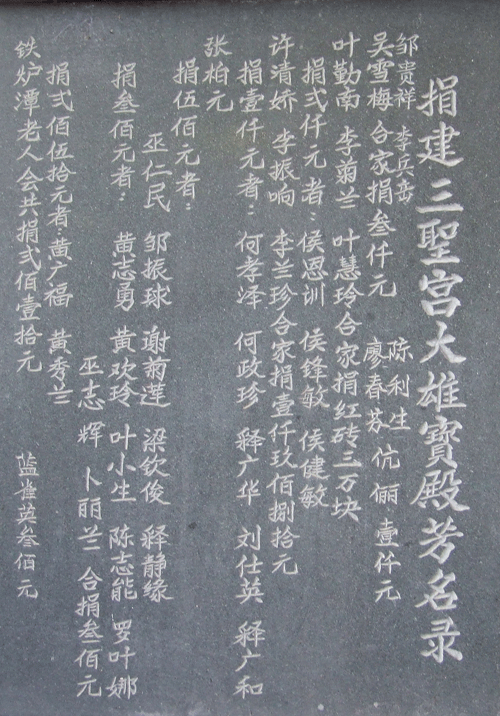 捐建三聖宫大雄寶殿芳名录
邹贵祥 李兵 陈利生
吴雪梅 合家捐叁仟元 廖春芬 伉俪 壹仟元
叶勤南 李菊兰 叶慧玲合家捐红砖三万块
捐弍仟元者：侯恩训 侯锋敏 侯健敏
许清娇 李振响 李兰珍合家捐壹仟玖佰捌拾元
捐壹仟元者：何孝泽 何政珍 释广华 刘仕英 释广和
张柏元
捐伍佰元者：
巫仁民 邹振球 谢菊莲 梁钦俊 释静缘
捐叁佰元者：黄志勇 黄欢玲 叶小生 陈志能 罗叶娜
巫志辉 卜丽兰 合捐叁佰元
捐弍佰伍拾元者：黄广福 黄秀兰
铁炉潭老人会共捐弍佰壹拾元 蓝雀英叁佰元